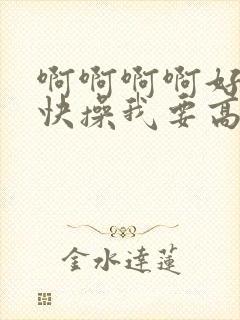 啊啊啊啊好
快操我要高
金水達蓮